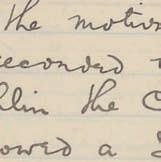 the motion
seconded
the C
owed a